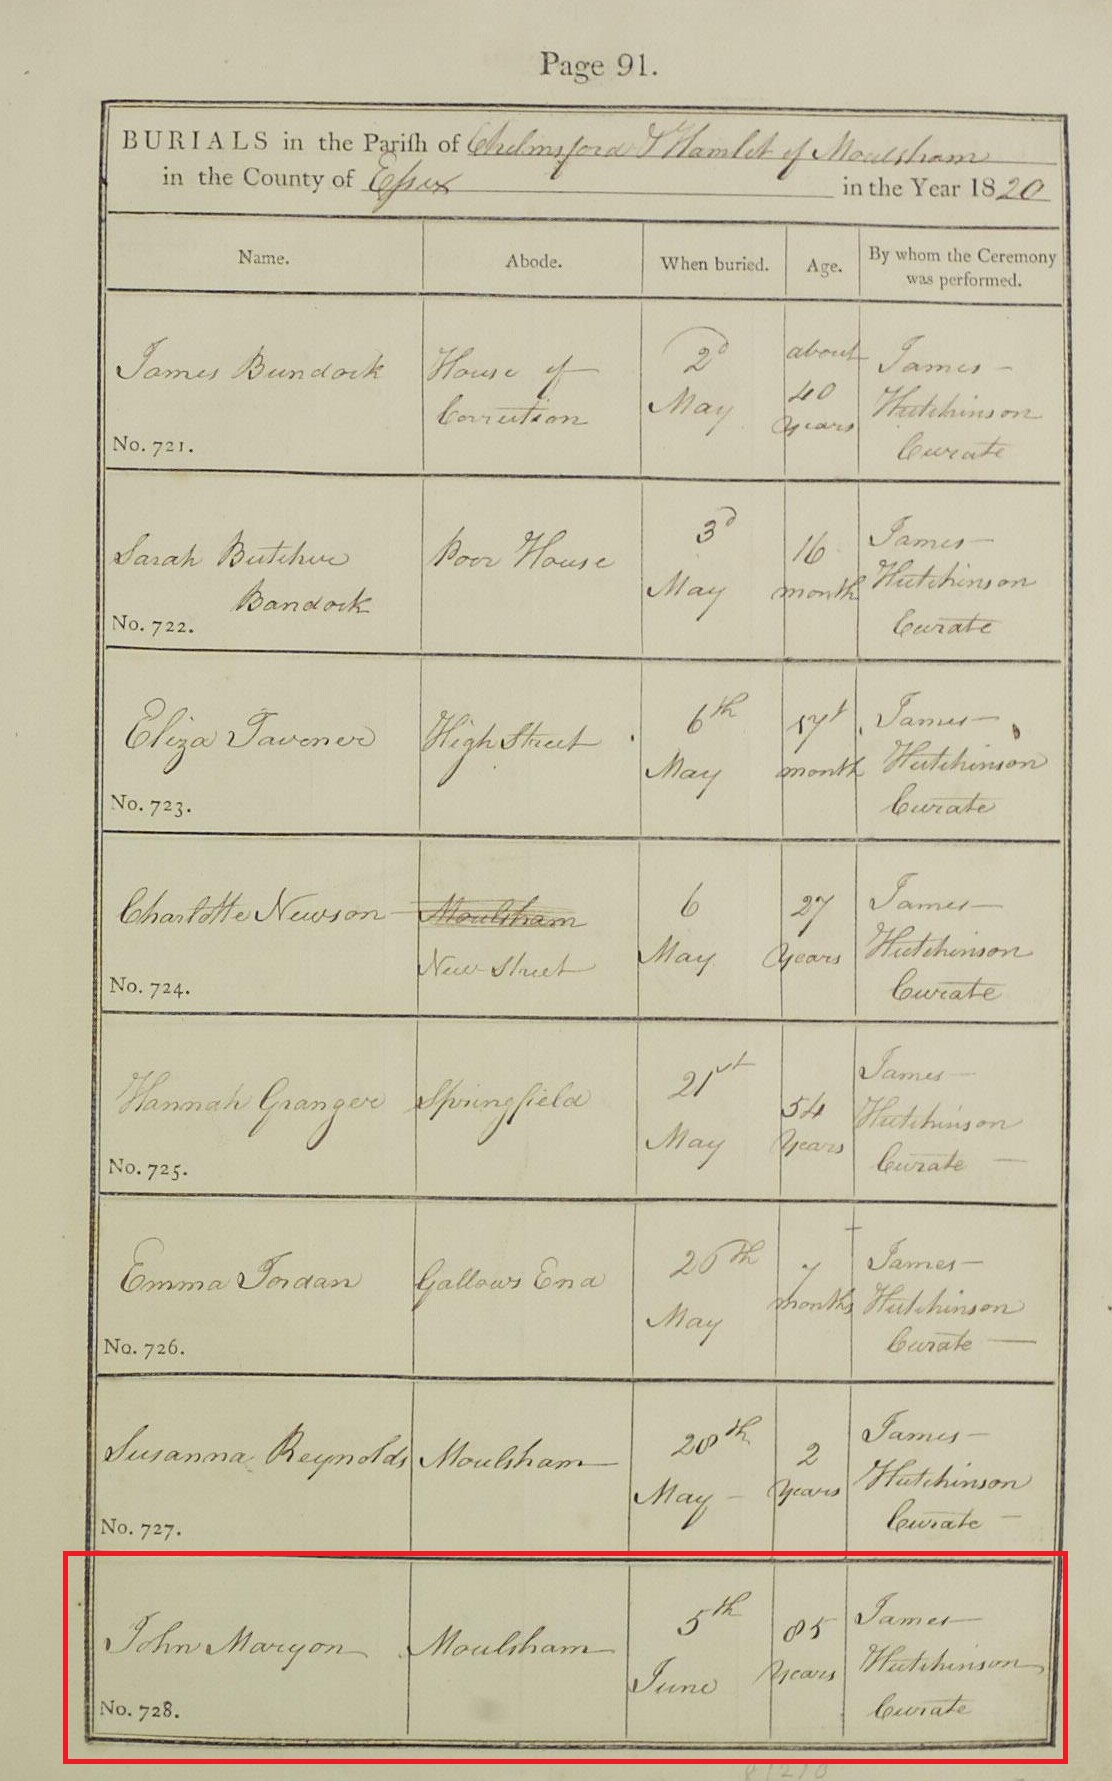 Page 91.
BURIALS in the Pariſh of Chelmsford & Hamlet of Moulsham
in the County of Eſsex in the Year 1820
Name. Abode. When buried. Age. By whom the Ceremony
was performed.
James Bundock House of 2d about James
Correction May 40 Hutchinson
No. 721. Years Curate
Sarah Butcher Poor House 3d 16 James
Bandock May month Hutchinson
No. 722. Curate
Eliza Tavener High Street 6th 17 James
May month Hutchinson
No. 723. Curate
Charlotte Newson Moulsham 6 27 James
New Street May Years Hutchinson
No. 724. Curate
Hannah Granger Springfield 21st 54 James
May Years Hutchinson
No. 725. Curate
Emma Jordan Gallows End 26th 7 James
May months Hutchinson
No. 726. Curate
Susanna Reynolds Moulsham 28th 2 James
May Years Hutchinson
No. 727. Curate
John Maryon Moulsham 5th 85 James
June Years Hutchinson
No. 728. Curate